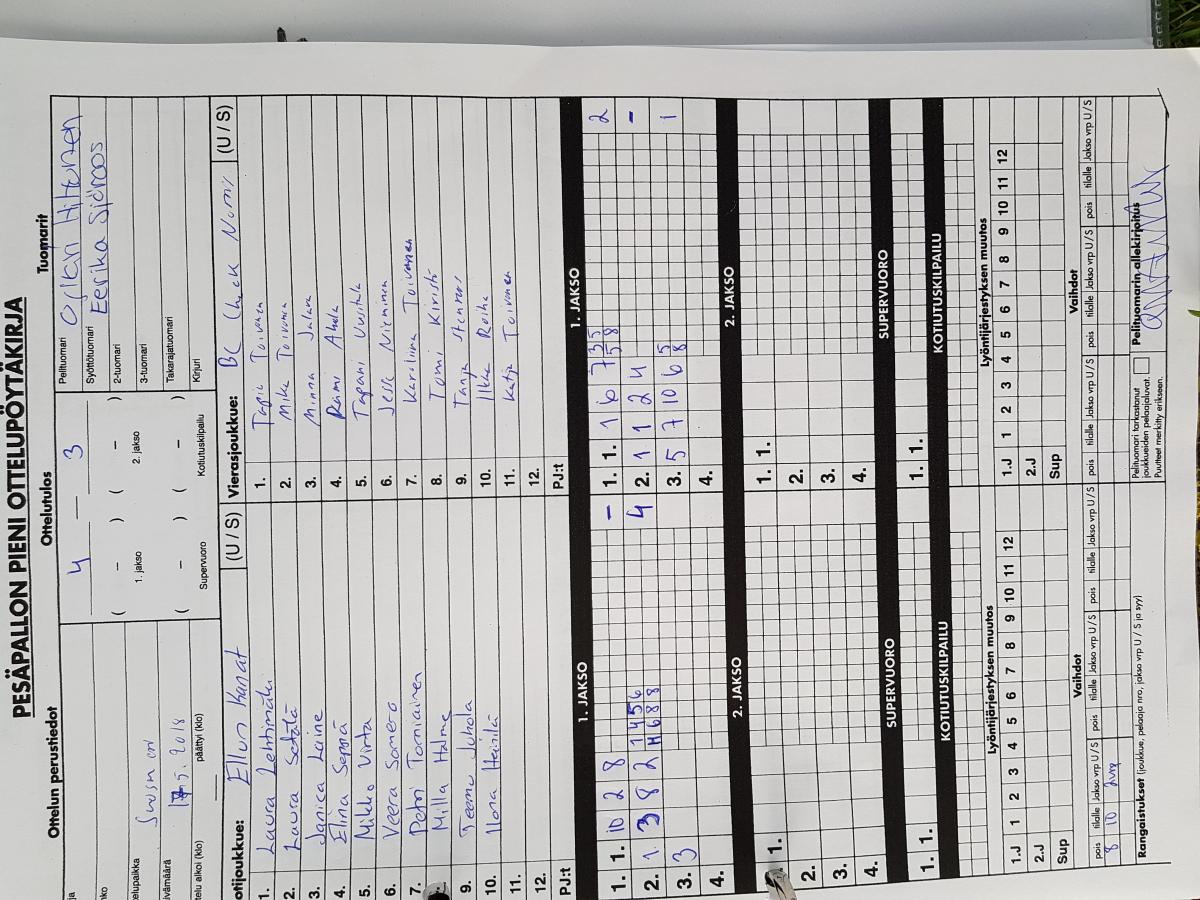 PESÄPALLON PIENI OTTELUPÖYTÄKIRJA
Ottelun perustiedot
Ottelutulos
Tuomarit
4 — 3
Pelituomari
Syöttötuomari Eerika Sjöroos
2-tuomari
3-tuomari
Takarajatuomari
Kirjuri
( – ) ( – )
1. jakso 2. jakso
( – ) ( – )
Supervuoro Kotiutuskilpailu
elupaikka
ivämäärä 5. 2018
telu alkoi (klo) päättyi (klo)
otijoukkue: Ellun Kanat (U / S)
1. Laura Lehtimäki
2. Laura Setälä
3. Janica Laine
4. Elina Seppä
5. Mikko Virta
6. Veera Somero
7. Petri Torniainen
8. Milla Halme
9. Teemu Juhola
10. Ilona Heinilä
11.
12.
PJ:t
Vierasjoukkue: BC Chuck Norris (U / S)
1. Tapio Toivonen
2. Mika Toivonen
3. Minna Jalava
4. Rami Ahola
5. Tapani
6. Jesse Nieminen
7. Karoliina Toivonen
8. Tomi Kiviristi
9. Tanja Stenroos
10. Ilkka Roiha
11. Katja Toivonen
12.
PJ:t
1. JAKSO
1. 1. 10 2 8 –
2. 1 3 8 2 1 4 5 6 4
4 6 8 8
3. 3
4.
1. JAKSO
1. 1. 1 6 7 3 5 2
5 8
2. 1 1 2 4 –
3. 5 7 10 6 5 1
8
4.
2. JAKSO
1.
2.
3.
4.
2. JAKSO
1. 1.
2.
3.
4.
SUPERVUORO
1. 1.
SUPERVUORO
1. 1.
KOTIUTUSKILPAILU
KOTIUTUSKILPAILU
Lyöntijärjestyksen muutos
1.J 1 2 3 4 5 6 7 8 9 10 11 12
2.J
Sup
Lyöntijärjestyksen muutos
1.J 1 2 3 4 5 6 7 8 9 10 11 12
2.J
Sup
Vaihdot
Vaihdot
pois tilalle Jakso vrp U/S pois tilalle Jakso vrp U/S pois tilalle Jakso vrp U/S
pois tilalle Jakso vrp U/S pois tilalle Jakso vrp U/S pois tilalle Jakso vrp U/S
8 10
Rangaistukset (joukkue, pelaaja nro, jakso vrp U / S ja syy)
Pelituomari tarkastanut
joukkueiden pelaajaluvat.
Puutteet merkitty erikseen.
Pelituomarin allekirjoitus